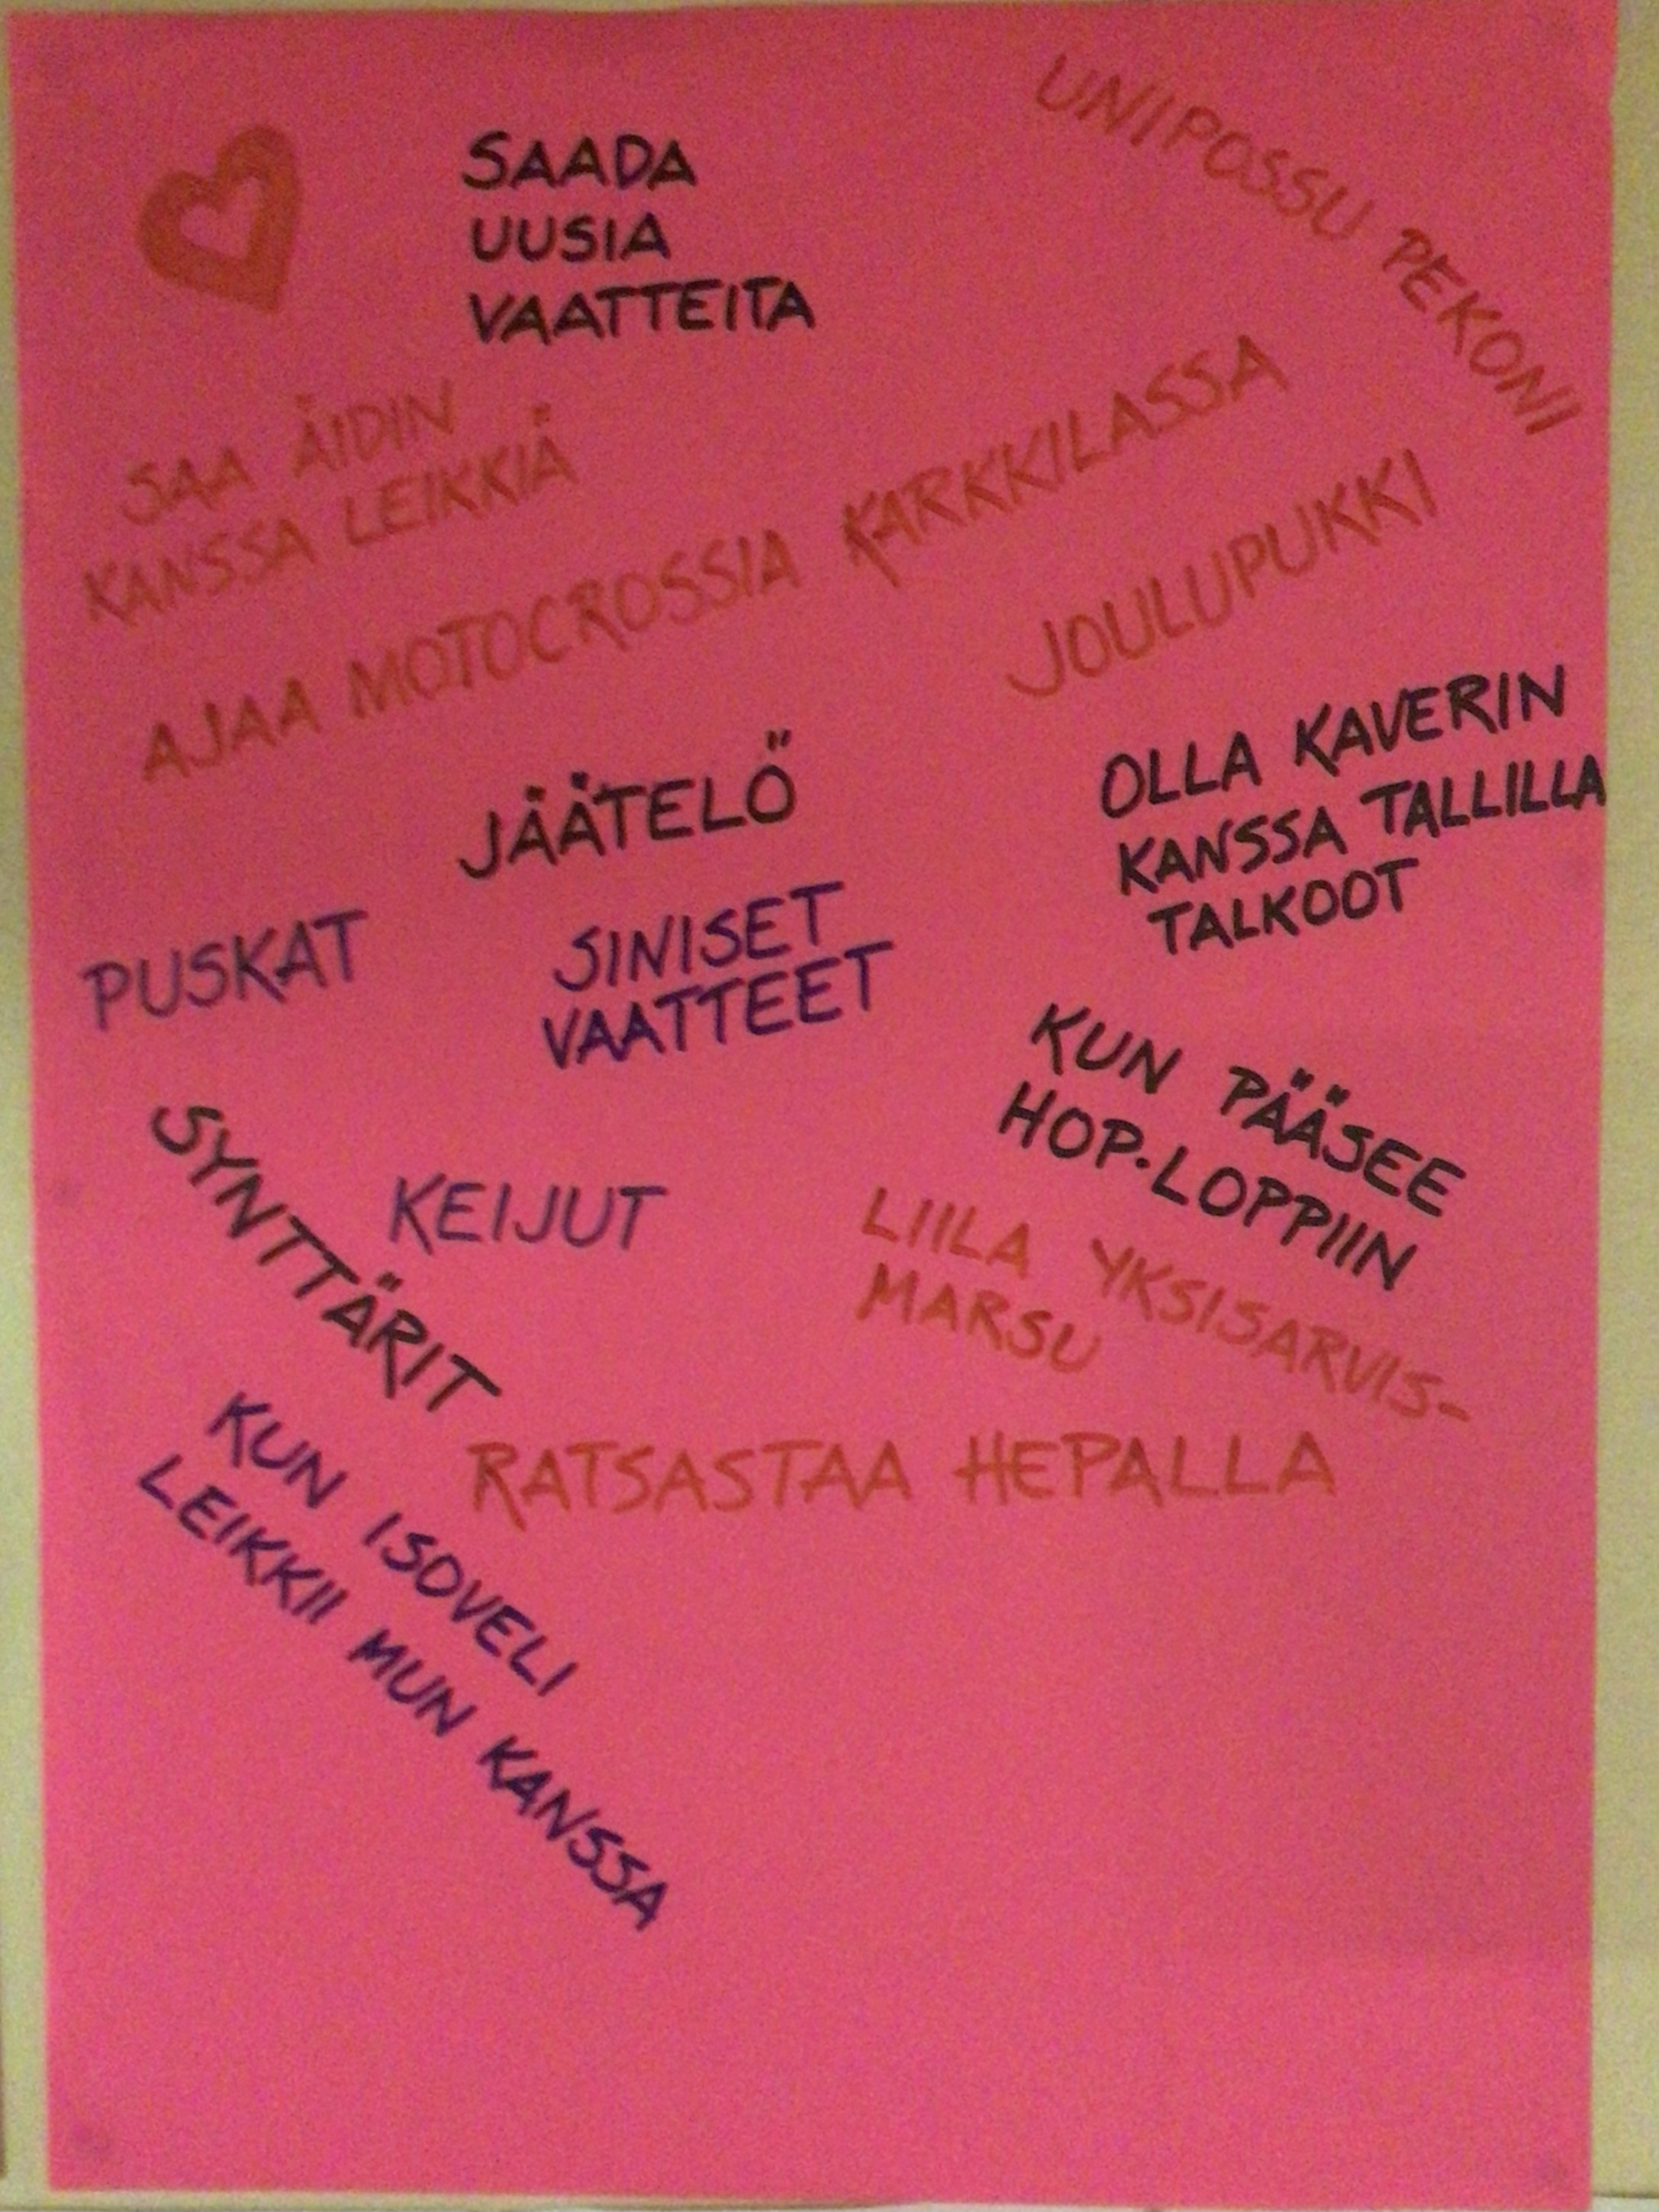 SAADA
UUSIA
VAATTEITA
UNIPOSSU PEKONI
SAA ÄIDIN
KANSSA LEIKKIÄ
AJAA MOTOCROSSIA KARKKILASSA
JOULUPUKKI
JÄÄTELÖ
OLLA KAVERIN
KANSSA TALLILLA
TALKOOT
PUSKAT
SINISET
VAATTEET
KUN PÄÄSEE
HOP-LOPPIIN
SYNTTÄRIT
KEIJUT
LIILA YKSISARVIS-
MARSU
RATSASTAA HEPALLA
KUN ISOVELI
LEIKKII MUN KANSSA